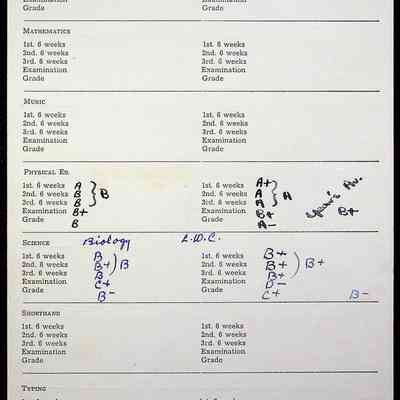 Grade Grade
MATHEMATICS
1st. 6 weeks 1st. 6 weeks
2nd. 6 weeks 2nd. 6 weeks
3rd. 6 weeks 3rd. 6 weeks
Examination Examination
Grade Grade
MUSIC
1st. 6 weeks 1st. 6 weeks
2nd. 6 weeks 2nd. 6 weeks
3rd. 6 weeks 3rd. 6 weeks
Examination Examination
Grade Grade
PHYSICAL ED.
1st. 6 weeks A 1st. 6 weeks A+
2nd. 6 weeks B } B 2nd. 6 weeks A } A Year's Av.
3rd. 6 weeks B 3rd. 6 weeks A
Examination B+ Examination B+ B+
Grade B Grade A-
SCIENCE Biology L.W.C.
1st. 6 weeks B 1st. 6 weeks B+
2nd. 6 weeks B+ ) B 2nd. 6 weeks B+ ) B+
3rd. 6 weeks B 3rd. 6 weeks B+
Examination C+ Examination D-
Grade B- Grade C+ B-
SHORTHAND
1st. 6 weeks 1st. 6 weeks
2nd. 6 weeks 2nd. 6 weeks
3rd. 6 weeks 3rd. 6 weeks
Examination Examination
Grade Grade
TYPING